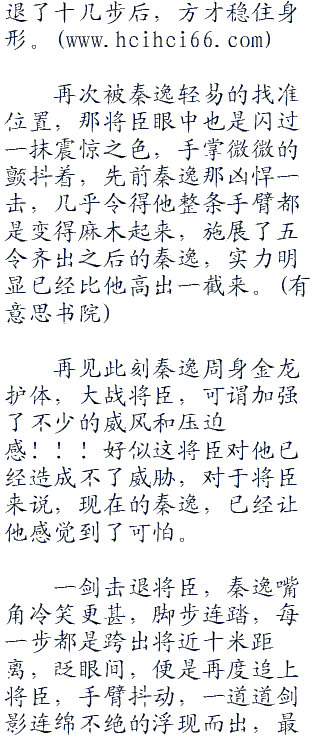 退了十几步后，方才稳住身
形。(www.hcihci66.com)
再次被秦逸轻易的找准
位置，那将臣眼中也是闪过
一抹震惊之色，手掌微微的
颤抖着，先前秦逸那凶悍一
击，几乎令得他整条手臂都
是变得麻木起来，施展了五
令齐出之后的秦逸，实力明
显已经比他高出一截来。(有
意思书院)
再见此刻秦逸周身金龙
护体，大战将臣，可谓加强
了不少的威风和压迫
感！！！好似这将臣对他已
经造成不了威胁，对于将臣
来说，现在的秦逸，已经让
他感觉到了可怕。
一剑击退将臣，秦逸嘴
角冷笑更甚，脚步连踏，每
一步都是跨出将近十米距
离，眨眼间，便是再度追上
将臣，手臂抖动，一道道剑
影连绵不绝的浮现而出，最